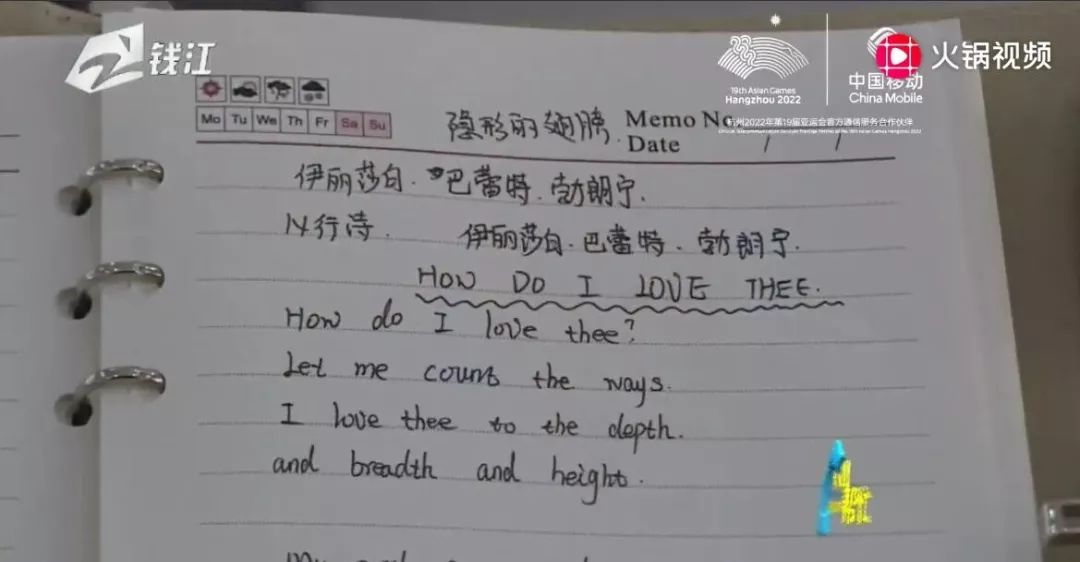 钱江
19th Asian Games
Hangzhou 2022
中国移动
China Mobile
火锅视频
杭州2022年第19届亚运会官方通信服务合作伙伴
Mo Tu We Th Fr Sa Su
隐形的翅膀.
Memo No.
Date / /
伊丽莎白.巴蕾特.勃朗宁.
14行诗. 伊丽莎白.巴蕾特.勃朗宁.
HOW DO I LOVE THEE.
How do I love thee?
Let me count the ways.
I love thee to the depth.
and breadth and height.